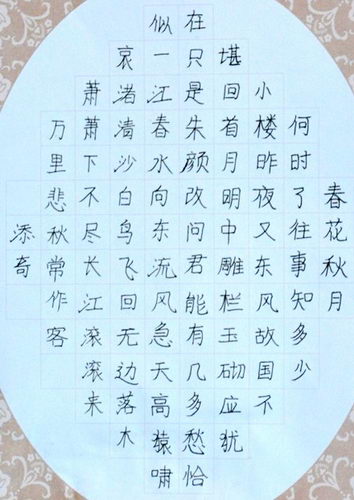 春花秋月
何时了往事知多少
小楼昨夜又东风故国不
堪回首月明中雕栏玉砌应犹
在只是朱颜改问君能有几多愁恰
似一江春水向东流风急天高猿啸
哀渚清沙白鸟飞回无边落木
萧萧下不尽长江滚滚来
万里悲秋常作客
添奇